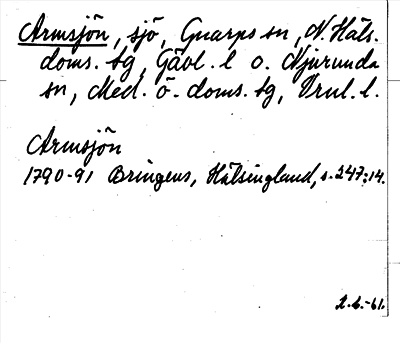 Armsjön, sjö, Gnarps sn, N. Häls.
doms. tg, Gävl. l o. Njurunda
sn, Med. ö. doms. tg, Vrnl. l.
Armsjön
1790-91 Bringens, Hälsingland, s. 247:14.
2.6.-61.